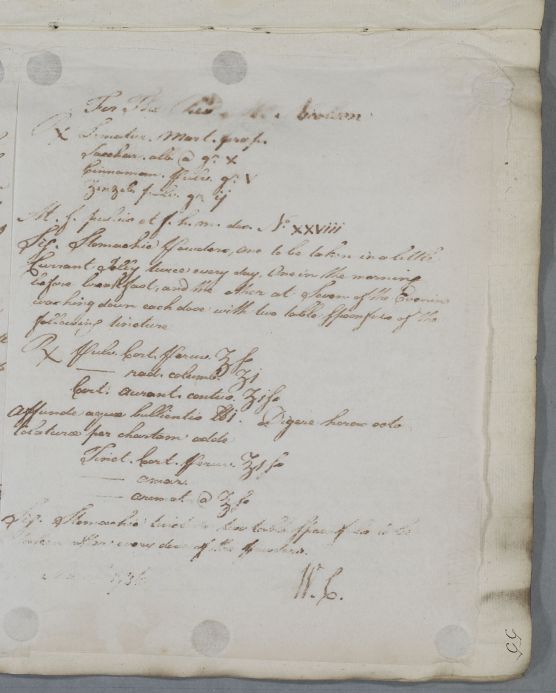 For The
℞ Limatur. Mart. prap.
Sacchar. alb @ gr. X
Cinnamom. pulv. gr. V
Zinzib. pulv. gr ij
M. f. pulvis et f. h. m. dos. No. XXVIII
Sig. Stomachic Powders, one to be taken in a little
Currant Jelly twice every day. One in the morning
before breakfast, and the other at Seven of the Evening
washing down each dose with two table Spoonfuls of the
following tincture
℞ Pulv. Cort. Peruv. ℥ fs
— rad. columb. ʒj
Cort. aurant. contus. ʒj fs
affunde aquæ bullientis ℔j. Digere horas octo
colaturæ per chartam adde
Tinct. Cort. Peruv. ℥j fs
— amar.
— aromat @ ℥ fs
Sig. Stomachic two table Spoonfuls to be
taken after every dose of the powders.
W. C.
55